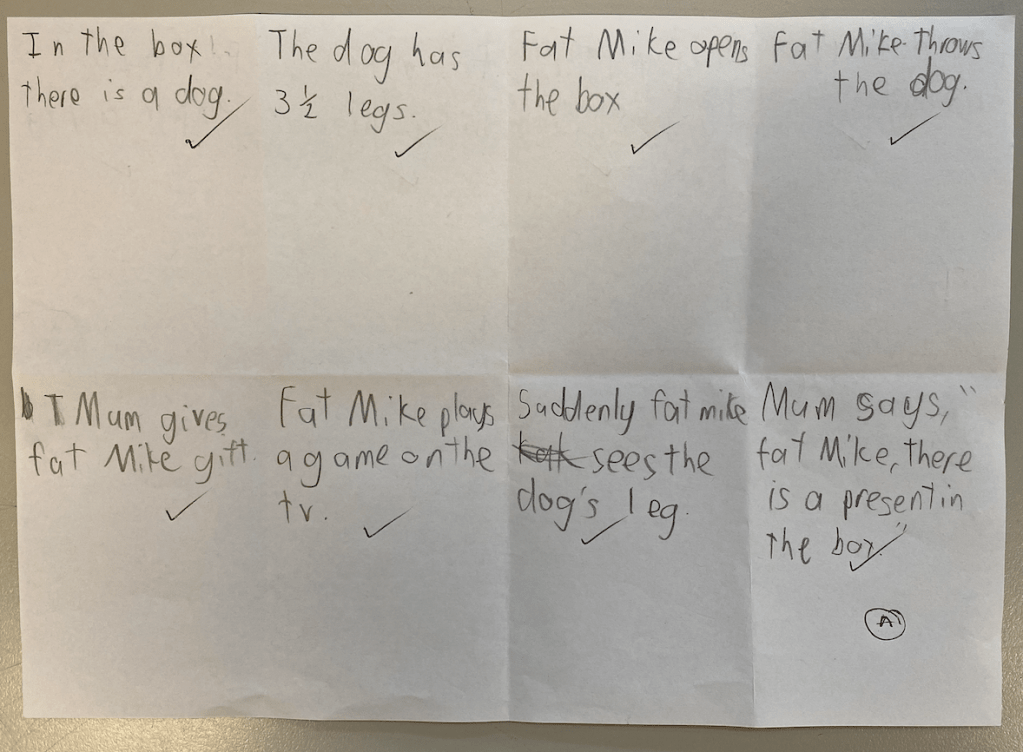 In the box
there is a dog.
The dog has
3 ½ legs.
Fat Mike opens
the box
Fat Mike throws
the dog.
Mum gives
fat Mike gift.
Fat Mike plays
a game on the
tv.
Suddenly fat mike
sees the
dog's leg.
Mum says, "
fat Mike, there
is a present in
the box."
A